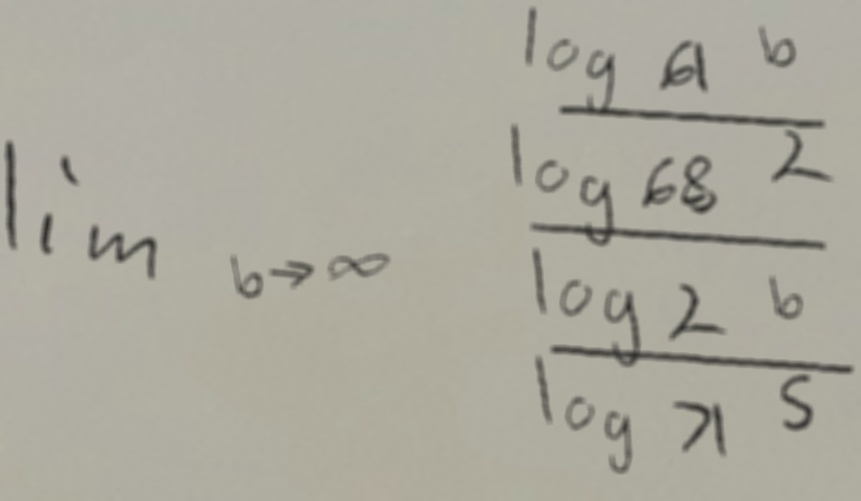 lim b→∞
log 61 b
log 68 2
log 2 b
log 71 5